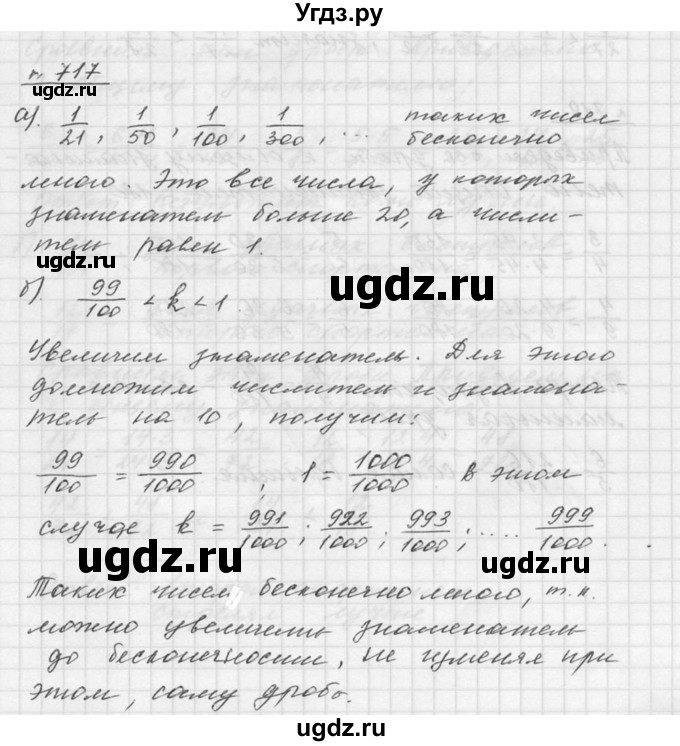 Угдз.ру
№ 717
а). 1/21, 1/50, 1/100, 1/300, ... таких чисел
бесконечно
много. Это все числа, у которых
знаменатель больше 20, а числи-
тель равен 1.
б). 99/100 < k < 1.
Увеличим знаменатель. Для этого
домножим числитель и знамена-
тель на 10, получим:
99/100 = 990/1000 ; 1 = 1000/1000 в этом
случае k = 991/1000 ; 992/1000 ; 993/1000 ; .... 999/1000 .
Таких чисел бесконечно много, т.к.
можно увеличить знаменатель
до бесконечности, не изменяя при
этом, саму дробь.
ugdz.ru
ugdz.ru
ugdz.ru
ugdz.ru
ugdz.ru
ugdz.ru
ugdz.ru
ugdz.ru
ugdz.ru